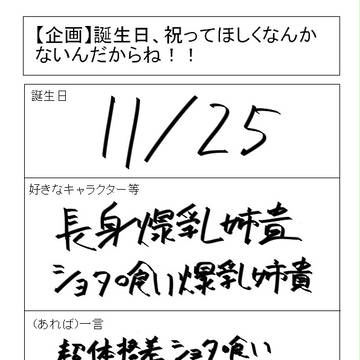 【企画】誕生日、祝ってほしくなんか
ないんだからね！！
誕生日
11/25
好きなキャラクター等
長身爆乳姉貴
ショタ喰い爆乳姉貴
（あれば）一言
超体格差ショタ喰い